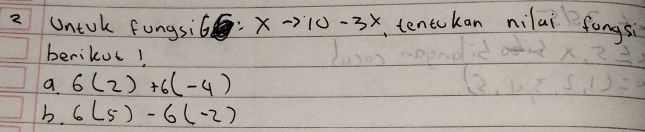 2 Untuk fungsi G : x → 10 - 3x, tentukan nilai fungsi
berikut !
a. 6(2) + 6(-4)
b. 6(5) - 6(-2)